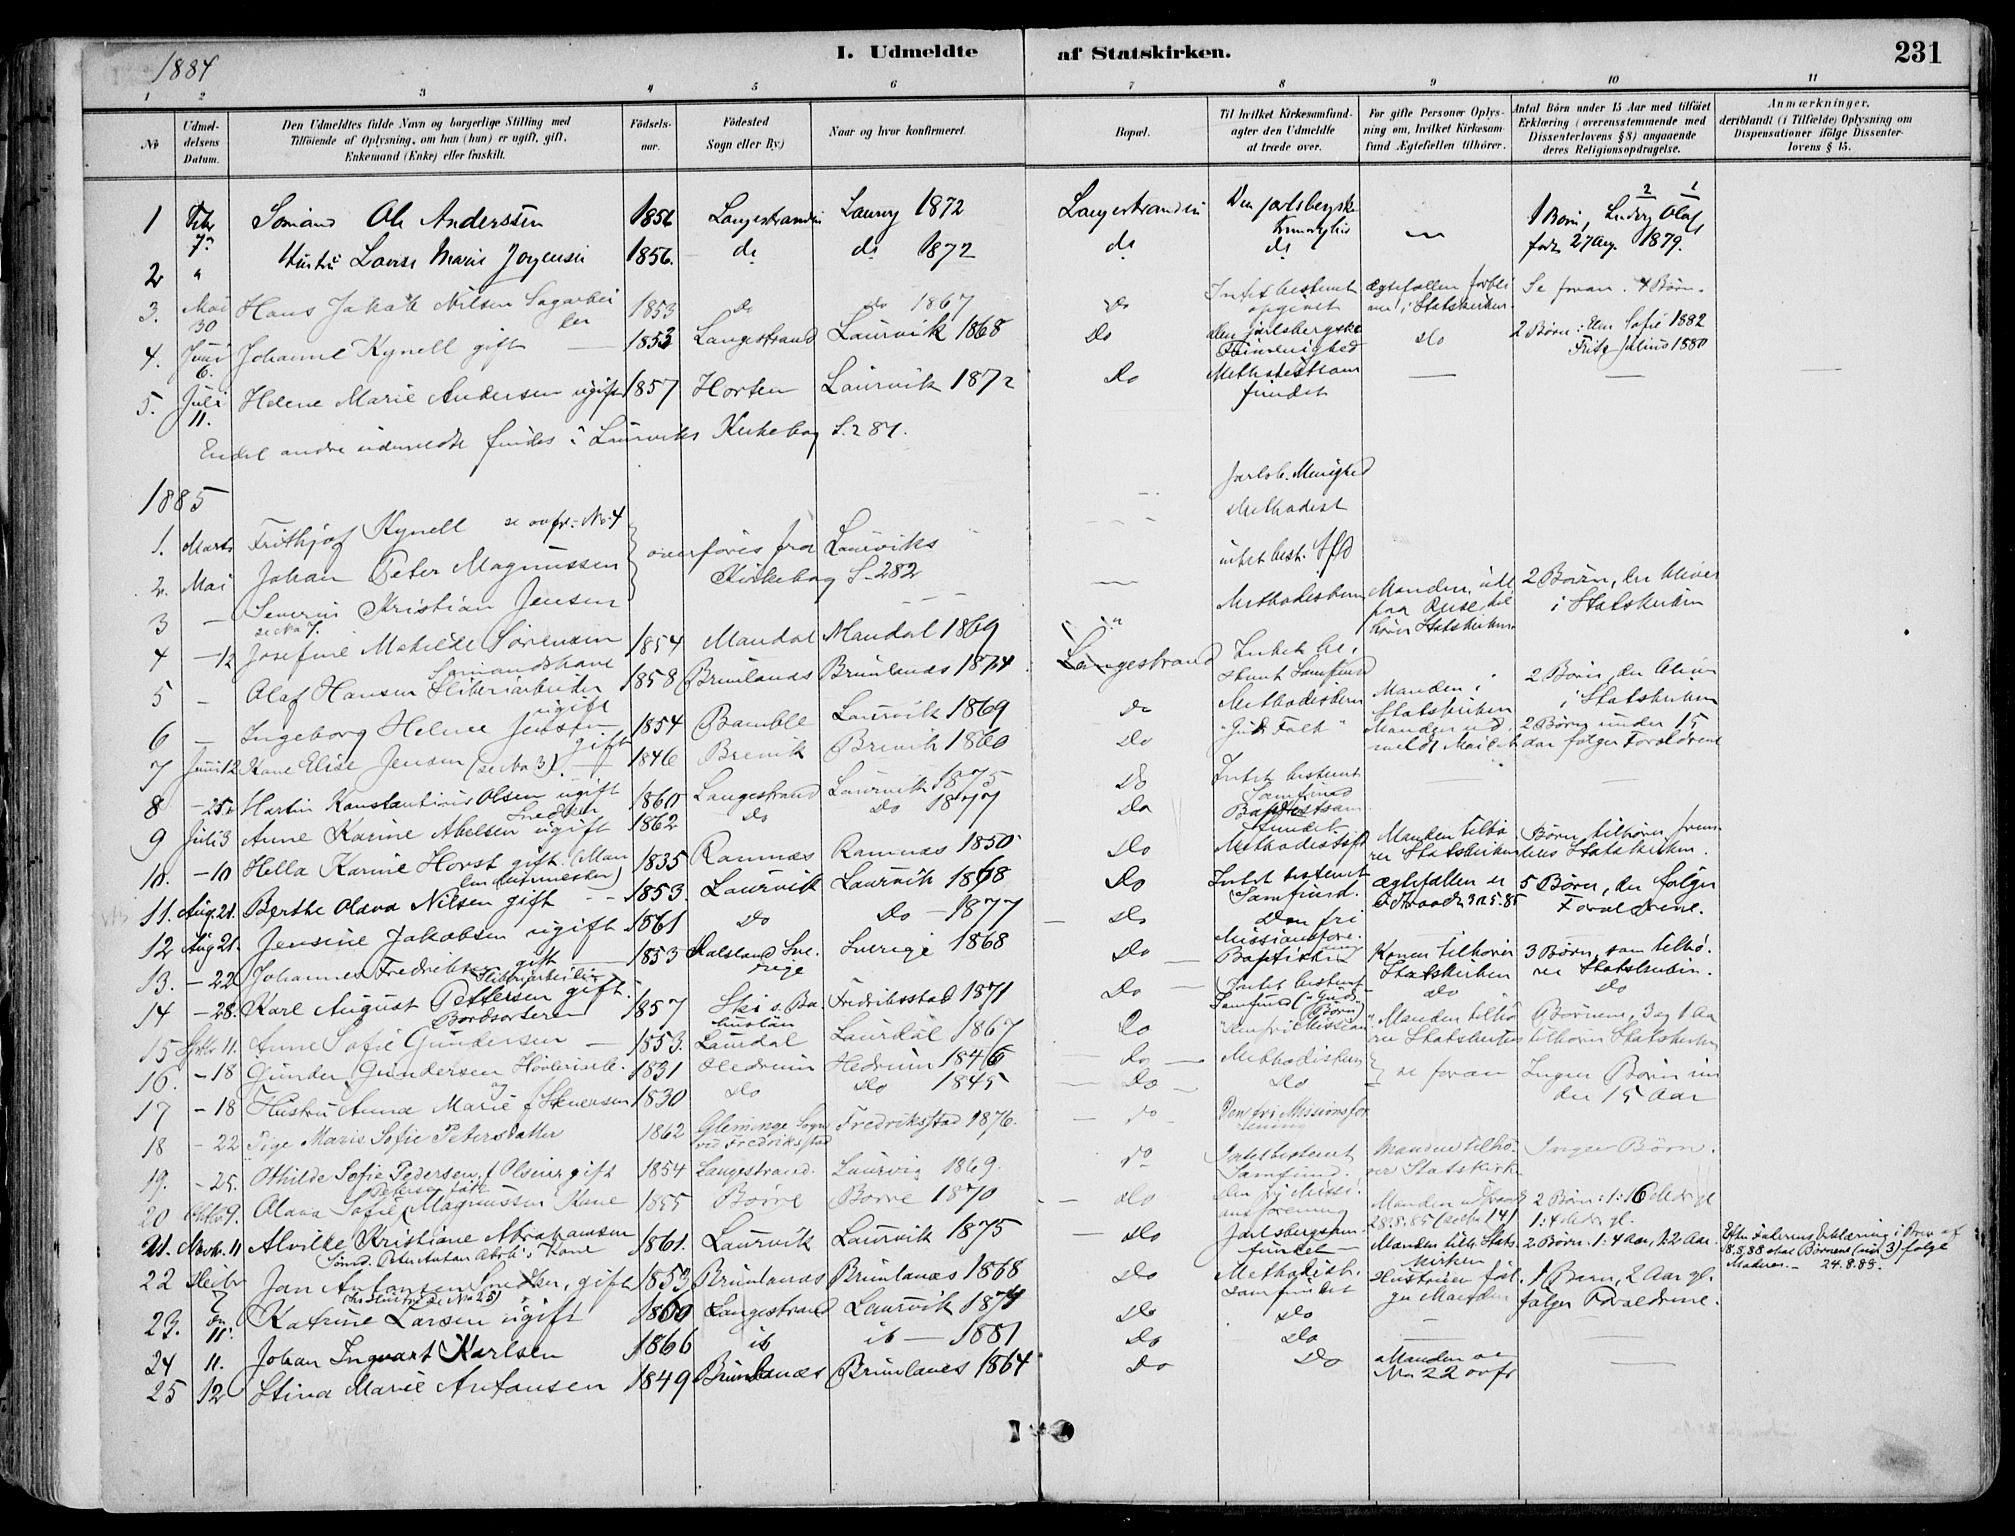 1884
I. Udmeldte af Statskirken.
231
1 2 3 4 5 6 7 8 9 10 11
No
Udmeldelsens Datum.
Den Udmeldtes fulde Navn og borgerlige Stilling med Tilføiende af Oplysning, om han (hun) er ugift, gift, Enkemand (Enke) eller fraskilt.
Fødselsaar.
Fødested Sogn eller By)
Naar og hvor konfirmeret.
Bopæl.
Til hvilket Kirkesamfund agter den Udmeldte at træde over.
For gifte Personer Oplysning om, hvilket Kirkesamfund Ægtefællen tilhører.
Antal Børn under 15 Aar med tilføiet Erklæring (overensstemmende med Dissenterlovens § 8) angaaende deres Religionsopdragelse.
Anmærkninger, deriblandt (i Tilfælde) Oplysning om Dispensationer ifølge Dissenterlovens § 15.
1 Febr 7. Sømand Ole Anderssen 1856 Langestranden Laurvig 1872 Langestranden Den jarlsbergske — 1 Barn, Ludvig Olaf
2 " Hustru Lovise Marie Jørgensen 1856. do do 1872 do do født 27 Aug. 1879.
3. Mai 30 Hans Jakob Nilsen Sagarbeider 1853 do do 1867 Do Intet bestemt opgivet ægtefællen forbliver i Statskirken Se foran. 4 Børn.
4. Juni 6. Johanne Kynell gift — 1853 Langestrand Laurvik 1868 Do den jarlsbergske Frimenighed Do 2 Børn: Elen Sofie 1882 Fritz Julius 1880
5. Juli 11. Helene Marie Andersen ugift 1857 Horten Laurvik 1872 Do Methodistsamfundet — — —
Endel andre udmeldte findes i Laurviks Kirkebog S. 281.
1885
1. Marts Frithjof Kynell se ovfr. No 4 Jarlsb. Menighed
2. Mai Johan Peter Magnussen overføres fra Laurviks Kirkebog S. 282 Methodist
3 — Severin Kristian Jensen se No 7. intet best. Sfd
4 — 12 Josefine Mathilde Sørensen Sømandskone 1854 Mandal Mandal 1869 " Methodistern Manden, ude paa Reise tilhører Statskirken 2 Børn, der bliver i Statskirken
5 — Olaf Hansen Sliberiarbeider ugift 1858 Brunlanæs Brunlanæs 1874 Langestrand Intet bestemt Samfund
6 — Ingeborg Helene Jensen gift 1854 Bamble Laurvik 1869 do Methodistern Manden i Statskirken 2 Børn, der bliver i Statskirken
7 Juni 12 Kone Elise Jensen (se No 3) — 1846 Brevik Brevik 1860 Do "Guds Folk" Manden udmeldt Mai 2 Børn under 15 aar følger Forældrene
8 — 25 Martin Konstantinus Olsen ugift Snedker 1860 Langestrand Laurvik 1875 Do Intet bestemt Samfund — —
9 Juli 3 Anne Karine Abelsen ugift 1862 Do Do 1877 Do Baptistsamfundet
10. — 10 Hella Karine Horst gift. (Man 1835 Ramnæs Ramnæs 1850 Do Methodistsfd Manden tilhører Statskirken Børn tilhører fremdeles Statskirken.
11. Aug. 21. Berthe Olava Nilsen gift — 1853. Laurvik Laurvik 1868 Do Intet bestemt Samfund. ægtefællen er 5 Børn, der følger Forældrene.
12 Aug 21. Jensine Jakobsen ugift 1861 Do Do — 1877 — Do Den fri Missionsfore.
13. — 22 Johannes Fredriksen gift Sliberiarbeider 1853 Halsland Sverige Sverige 1868 Do — Baptistern Konen tilhører Statskirken 3 Børn, som tilhører Statskirken.
14 — 28. Karl August Pettersen gift. Bordsorterer 1857 Fredriksstad 1871 Do — Intet bestemt Samfund ("Guds Børn) Do Do
15 Septbr 11. Anne Sofie Gundersen — 1853. Laurdal Laurdal 1867 Do "Den fri Mission" Manden tilhører Statskirken Børnene, 3 og 1 Aar tilhører Statskirken
16. — 18 Gunder Gundersen Høvleriarb. 1831 Hedrum Hedrum 1846 Do — Methodistern se foran Ingen Børn under 15 Aar
17 — 18 Hustru Anna Marie f. 1830 Do Do 1845 — Do — Do
18 — 22 Pige Maris Sofie Petersdatter 1862 Glemminge Sogn ved Fredriksstad Fredriksstad 1876. — Do Den fri Missionsforening
19. — 25. Othilde Sofie Pedersen, f. Olsen, gift 1854 Langestrand. Laurvig 1869. Do Intet bestemt Samfund. Manden tilhører Statskirk. Ingen Børn.
20 Oktbr 9. Olava Sofie Magnussen Kone 1855 Borre Borre 1870 — Do Den fri Missionsforening Manden udtraadt 28.8.85 (se No 14) 2 Børn: 1: 16 Mdr gl 1: 4 Mdr. gl.
21. Novbr. 11 Alvilde Kristiane Abrahamsen Sømd. Peter Anton Abrh.'s Kone 1861. Laurvik Laurvik 1875 — Do Jarlsbergsamfundet — Manden tilh. Statskirken 2 Børn: 1: 4 Aar, 1: 2 Aar. Efter Faderens Erklæring i Brev af 18.5.88 skal Børnene (nu 3) følge Moderen. — 24.8.88.
22 Decbr 7 Jan Antonsen Snedker, gift (hs Hustru se No 25) 1853 Brunlanæs Brunlanæs 1868 Do Methodistsamfundet Hustruen følger Manden 1 Barn, 2 Aar gl. følger Forældrene.
23. 11. Katrine Larsen ugift 1860 Langestrand Laurvik 1874 Do Do —
24 11. Johan Ingvart Karlsen 1866 ib ib — 1881 Do Do —
25 12 Stina Marie Antonsen 1849 Brunlanæs Brunlanes 1864 Do Do Manden se No 22 ovfr —